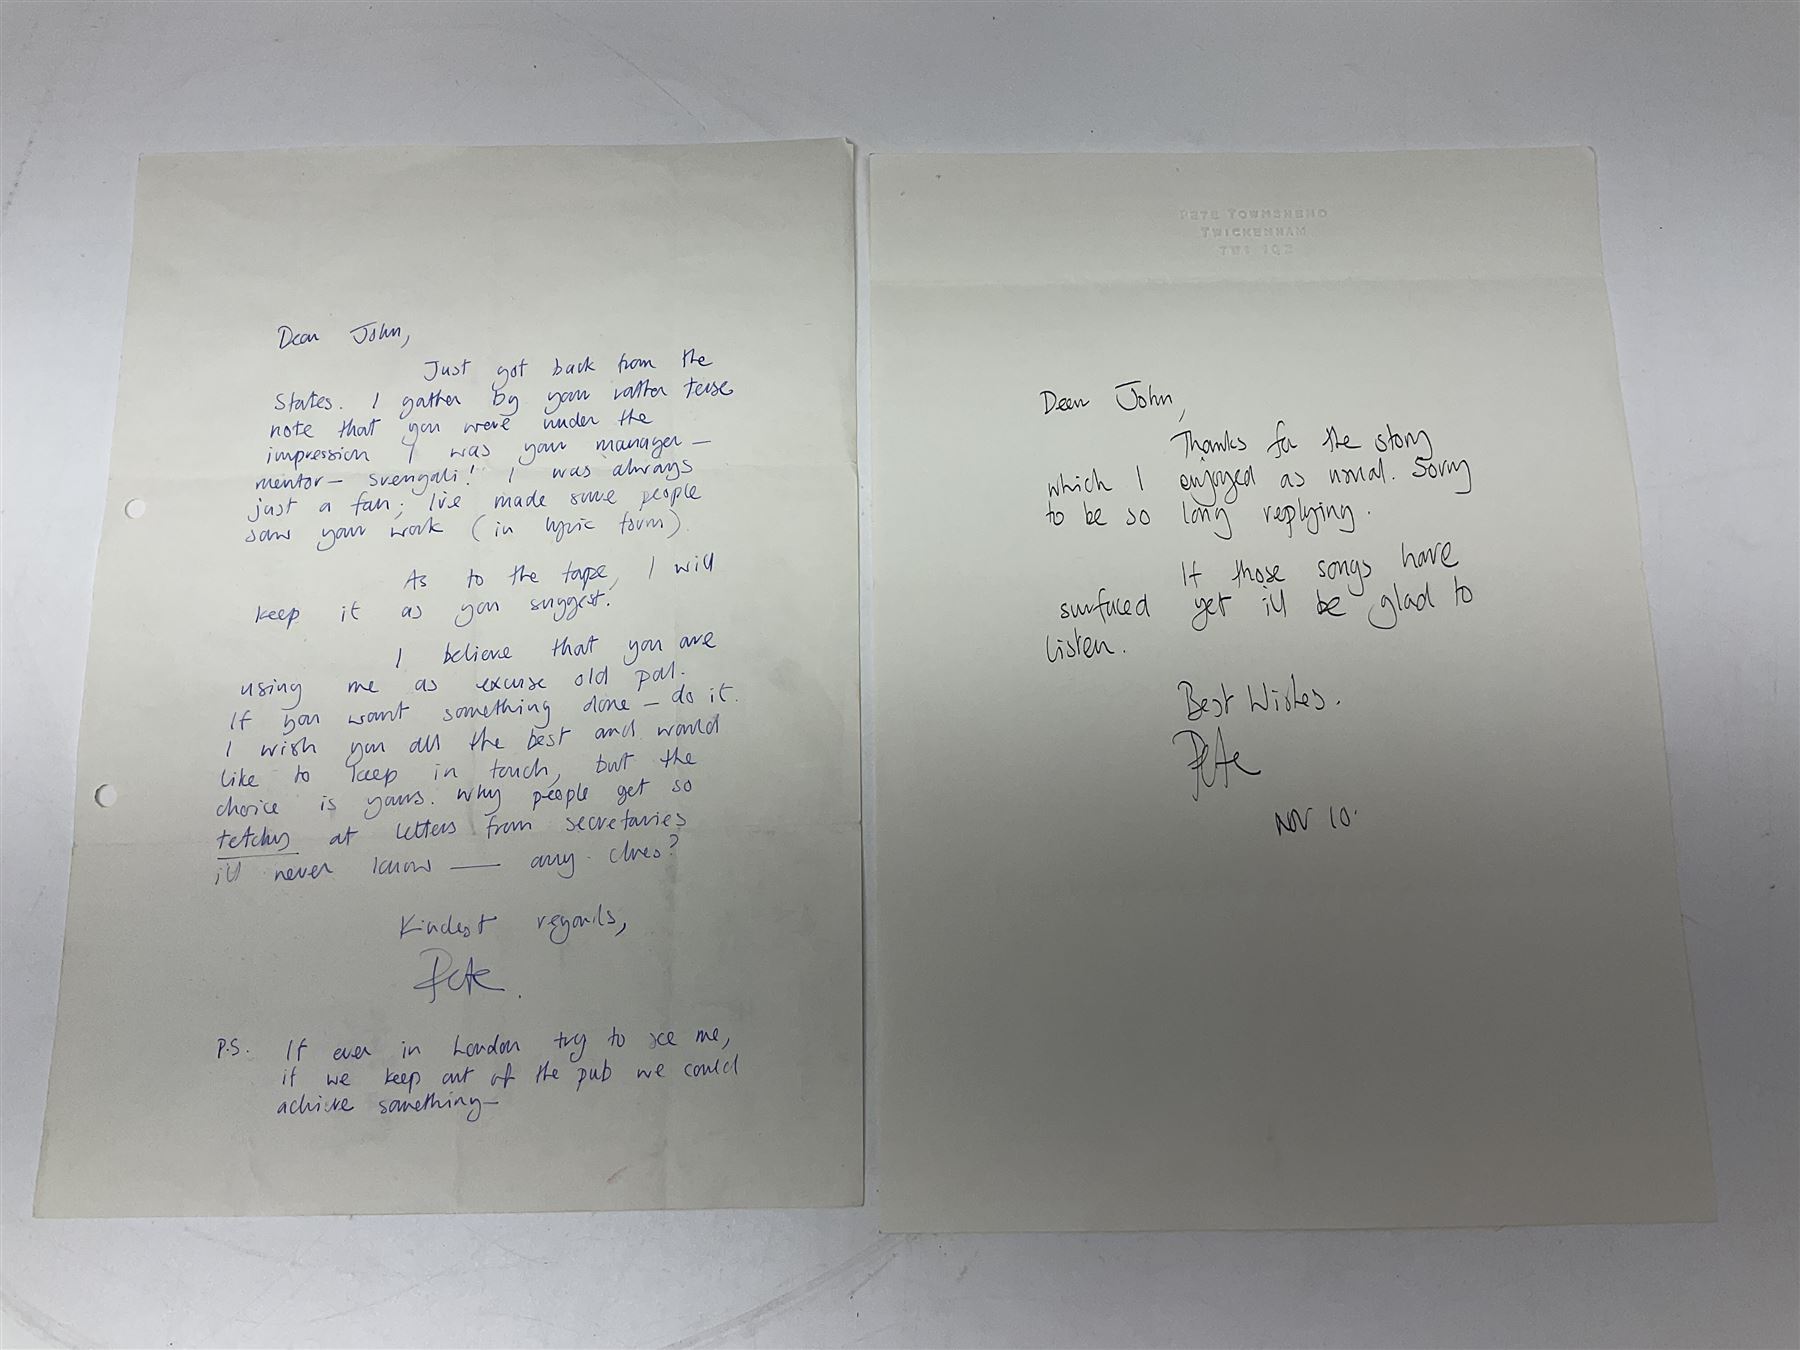 Dear John,
Just got back from the
States. I gather by your rather terse
note that you were under the
impression I was your manager —
mentor — svengali! I was always
just a fan; I've made sure people
saw your work (in lyric form).
As to the tape, I will
keep it as you suggest.
I believe that you are
using me as excuse old pal.
If you want something done — do it.
I wish you all the best and would
like to keep in touch, but the
choice is yours. Why people get so
tetchy at letters from secretaries
ill never know — any clues?
Kindest regards,
Pete.
P.S. If ever in London try to see me,
if we keep out of the pub we could
achieve something —
PETE TOWNSHEND
TWICKENHAM
TW1
Dear John,
Thanks for the story
which I enjoyed as usual. Sorry
to be so long replying.
If those songs have
surfaced yet ill be glad to
listen.
Best Wishes.
Pete
Nov 10.